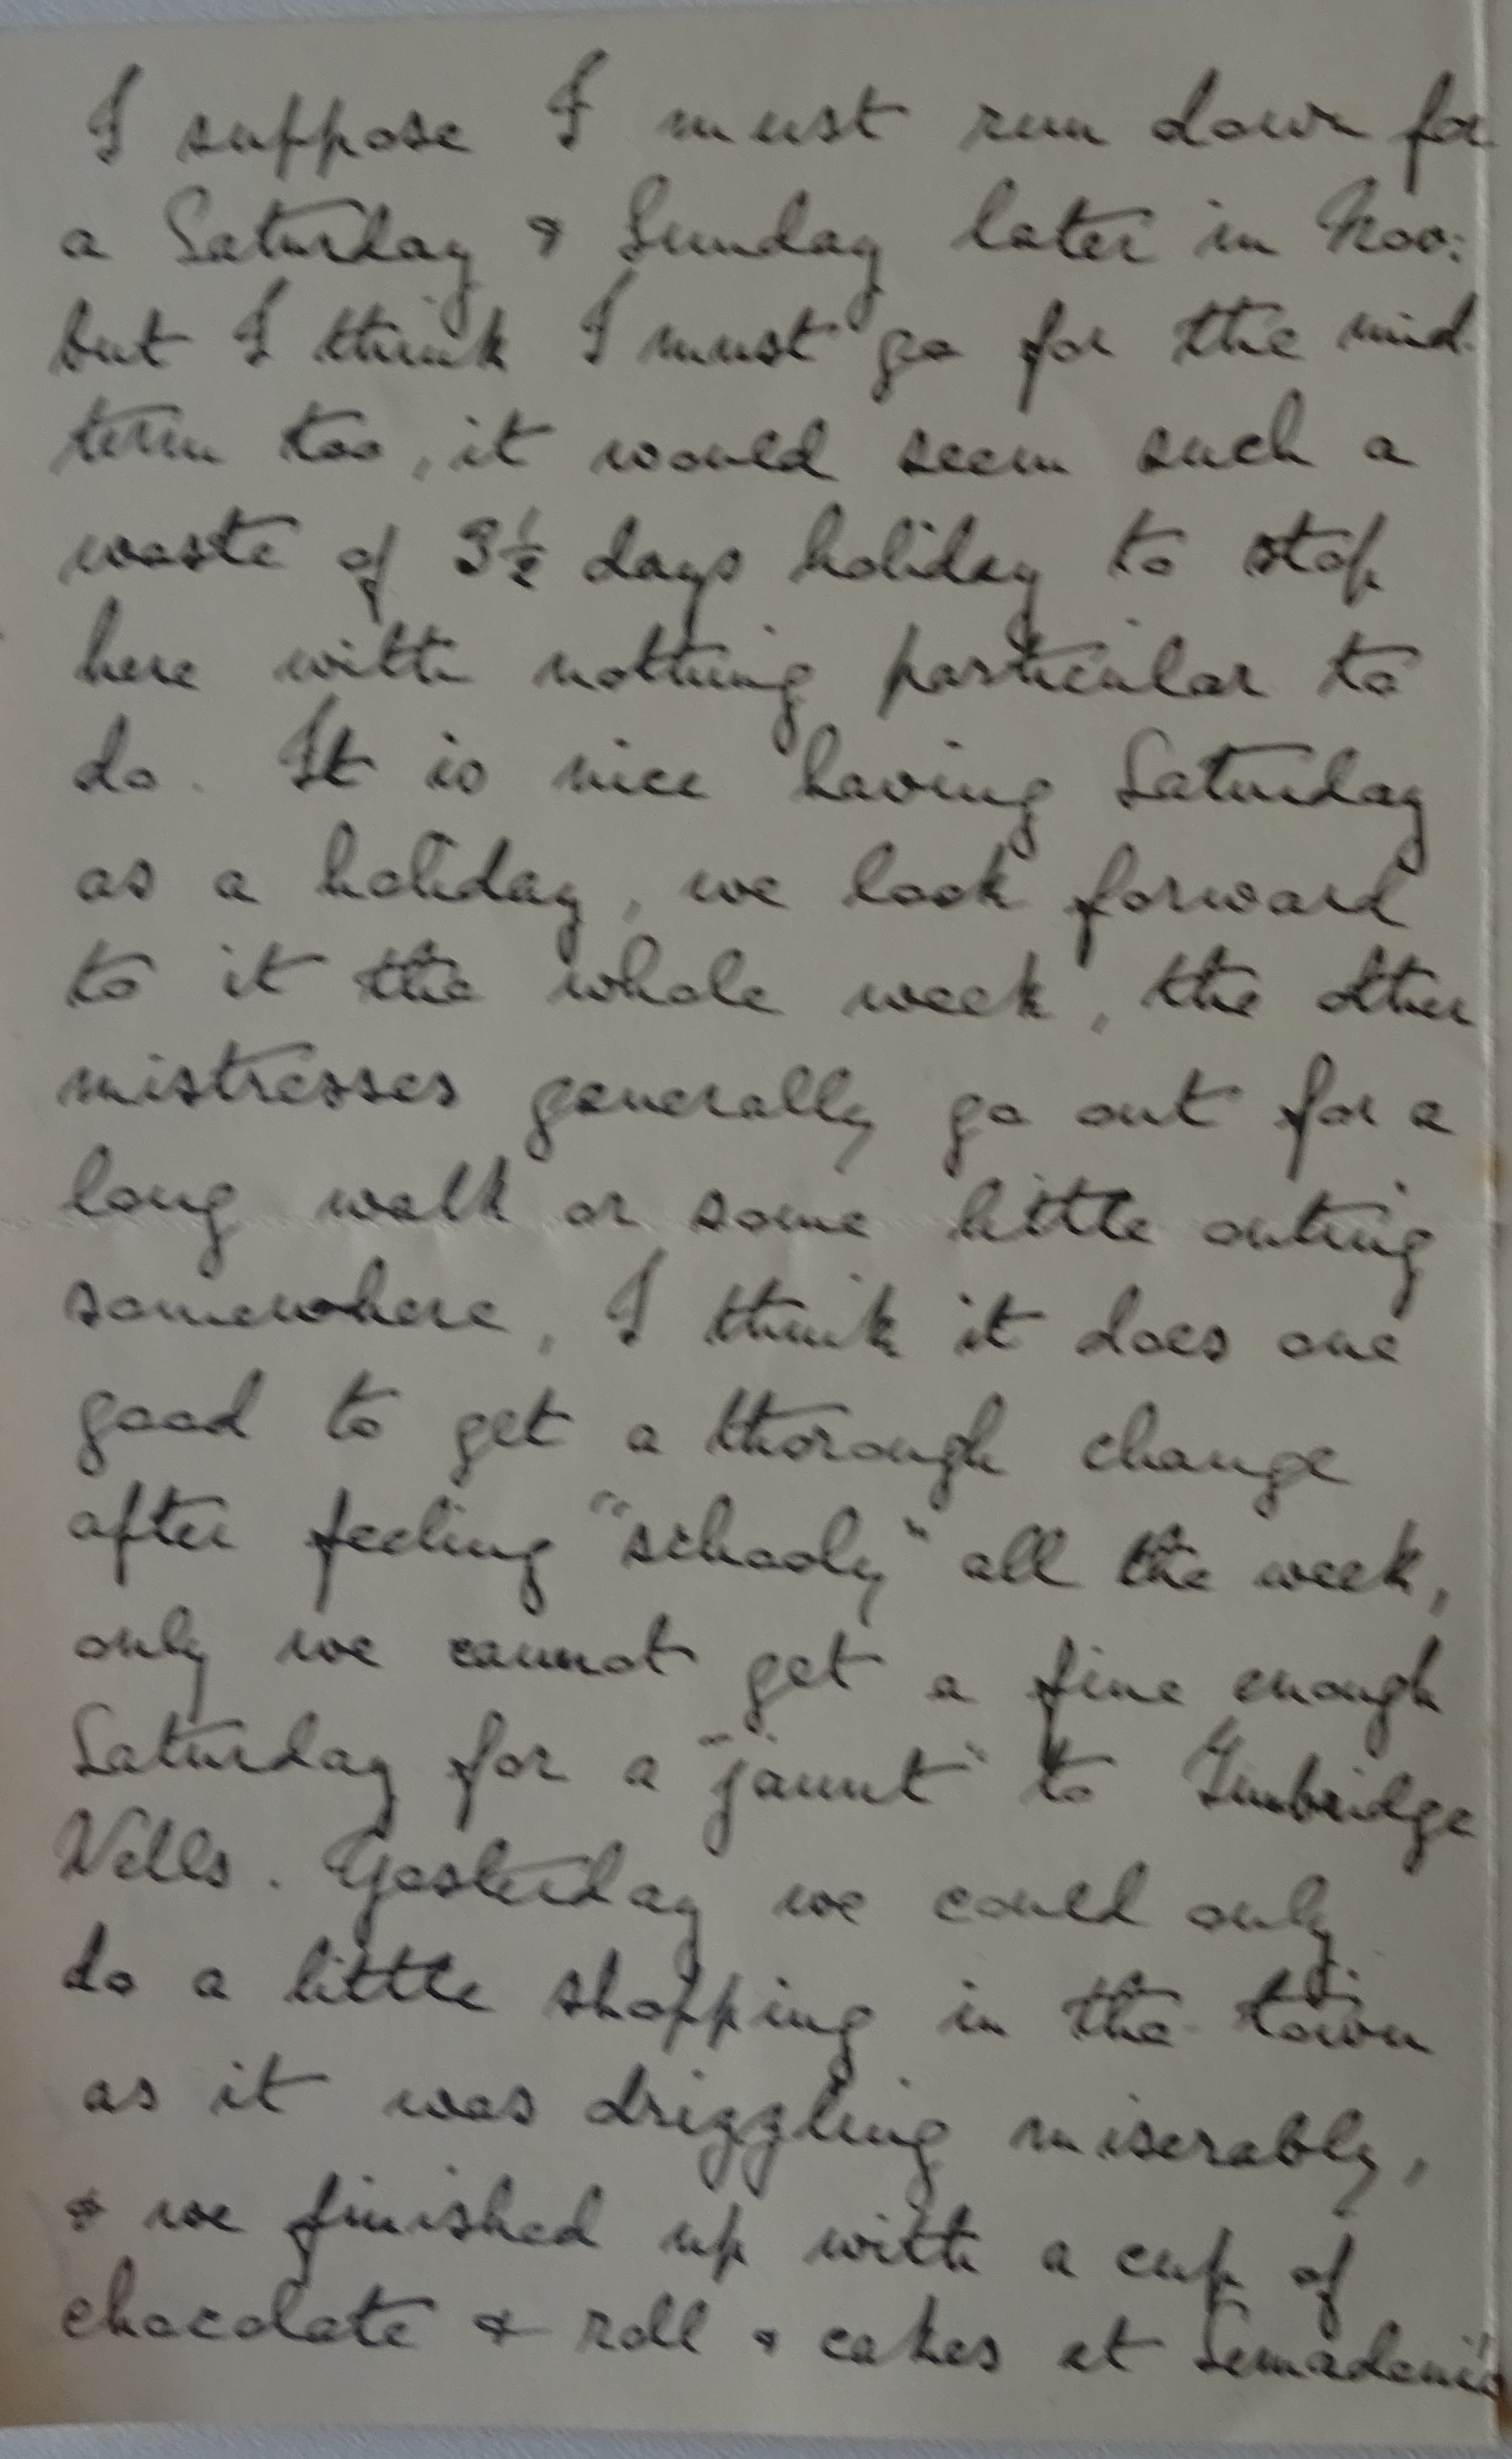 I suppose I must run down for
a Saturday & Sunday later in Nov:
but I think I must go for the mid-
term too, it would seem such a
waste of 3½ days holiday to stop
here with nothing particular to
do. It is nice having Saturday
as a holiday, we look forward
to it the whole week, the other
mistresses generally go out for a
long walk or some little outing
somewhere, I think it does one
good to get a thorough change
after feeling "schooly" all the week,
only we cannot get a fine enough
Saturday for a "jaunt" to Tunbridge
Wells. Yesterday we could only
do a little shopping in the town
as it was drizzling miserably,
& we finished up with a cup of
chocolate & roll & cakes at Semadeni's